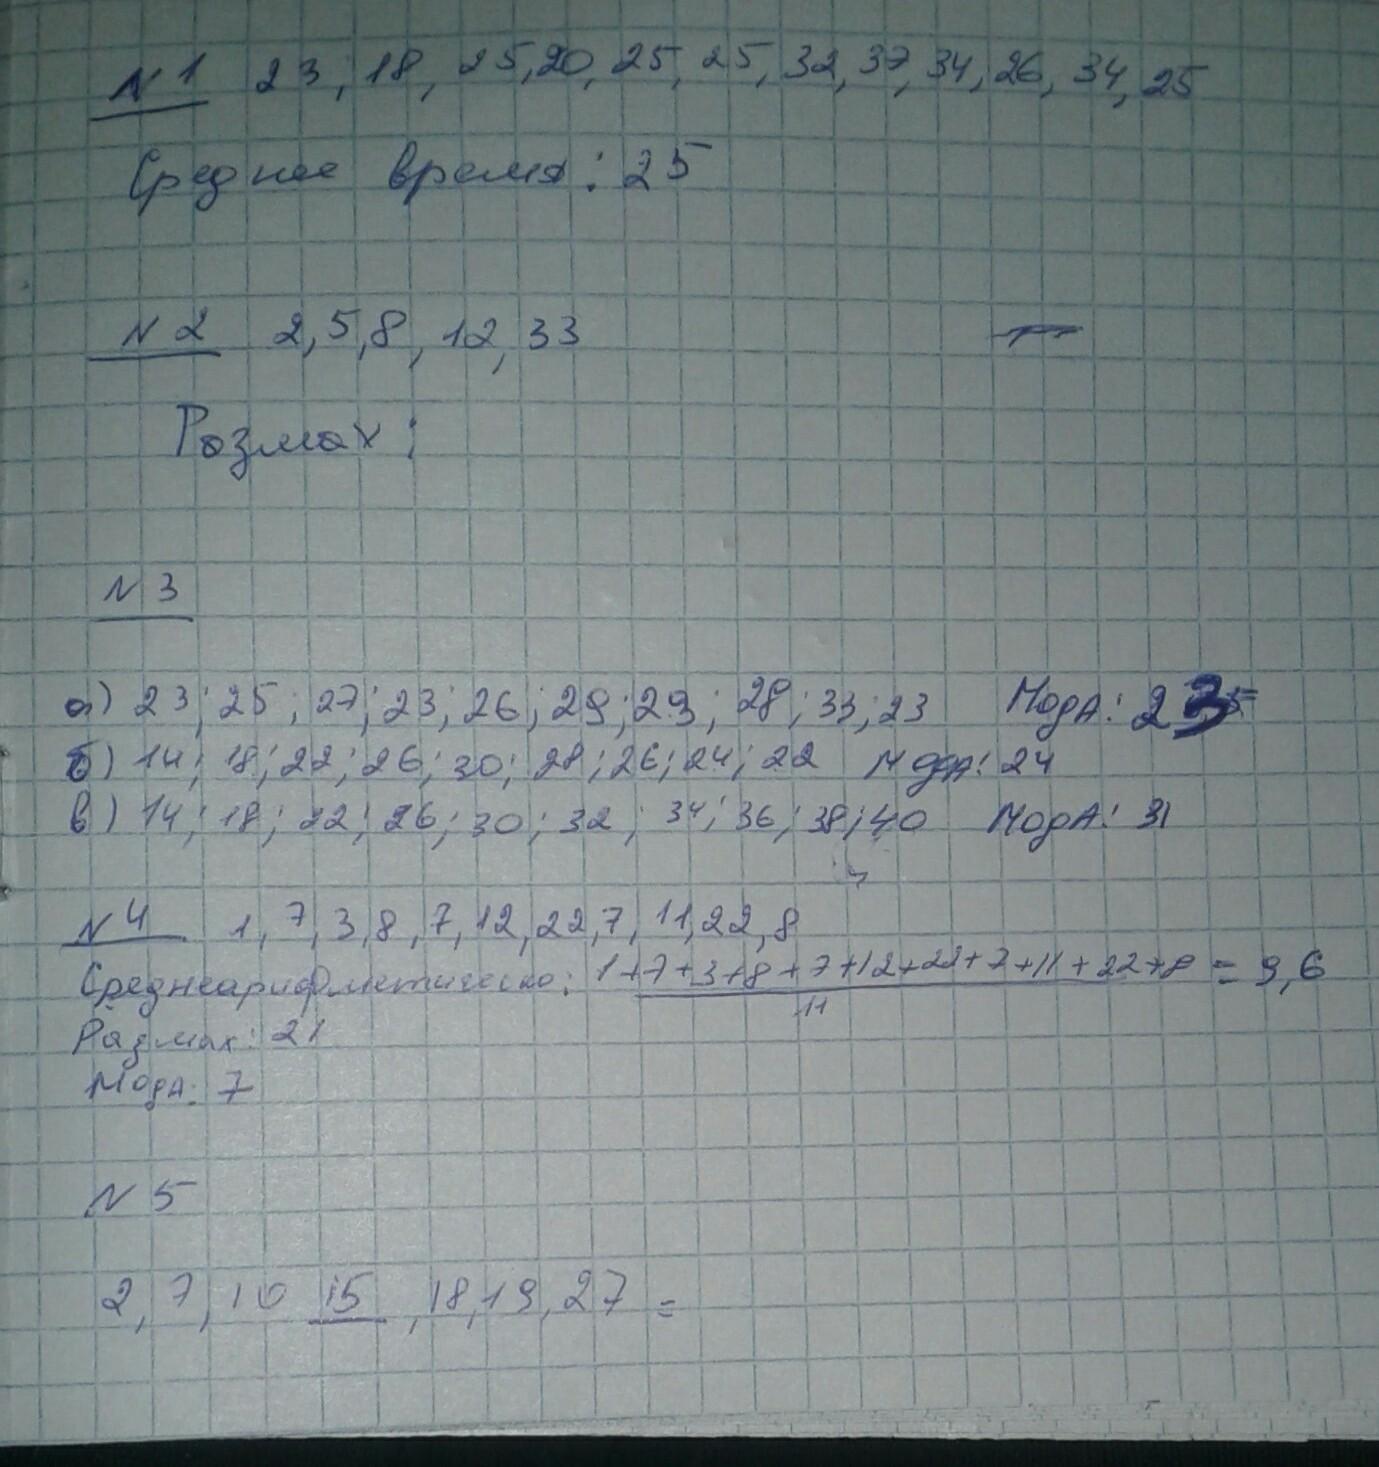 N1 23; 18, 25, 20, 25, 25, 32, 37, 34, 26, 34, 25
Среднее время: 25
N2 2, 5, 8, 12, 33
Розмах:
N3
а) 23; 25; 27; 23; 26; 29; 29; 28; 33; 23 МодА: 23
б) 14; 18; 22; 26; 30; 28; 26; 24; 22 МодА: 24
в) 14; 18; 22; 26; 30; 32; 34; 36; 38; 40 МодА: 31
N4 1, 7, 3, 8, 7, 12, 22, 7, 11, 22, 8
Среднеарифметическо: 1+7+3+8+7+12+22+7+11+22+8 = 9,6
11
Размах: 21
МодА: 7
N5
2, 7, 10 15, 18, 19, 27 =